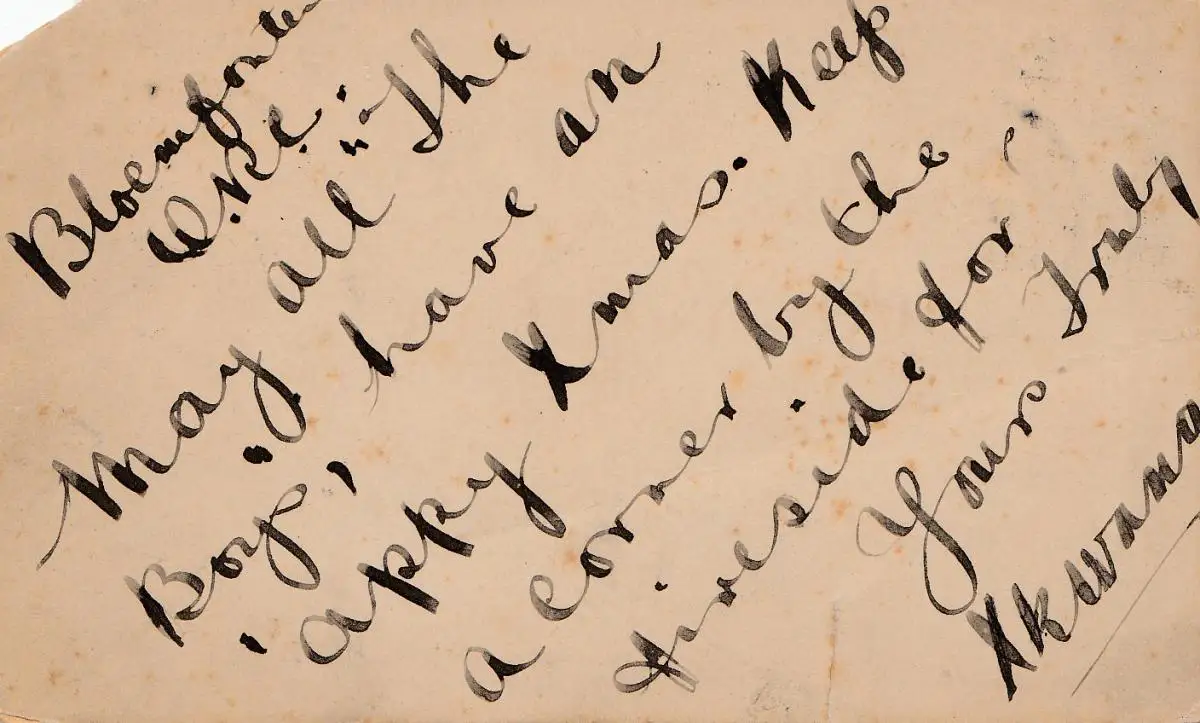 Bloemfontein
O.R.C.
May all "The
Boys," have an
'appy Xmas. Keep
a corner by the
fireside for
Yours Truly